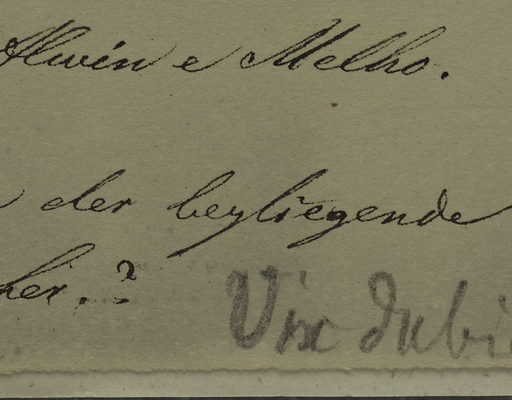 Alwin e Melho.
der beyliegende
her.?
Vix dubi